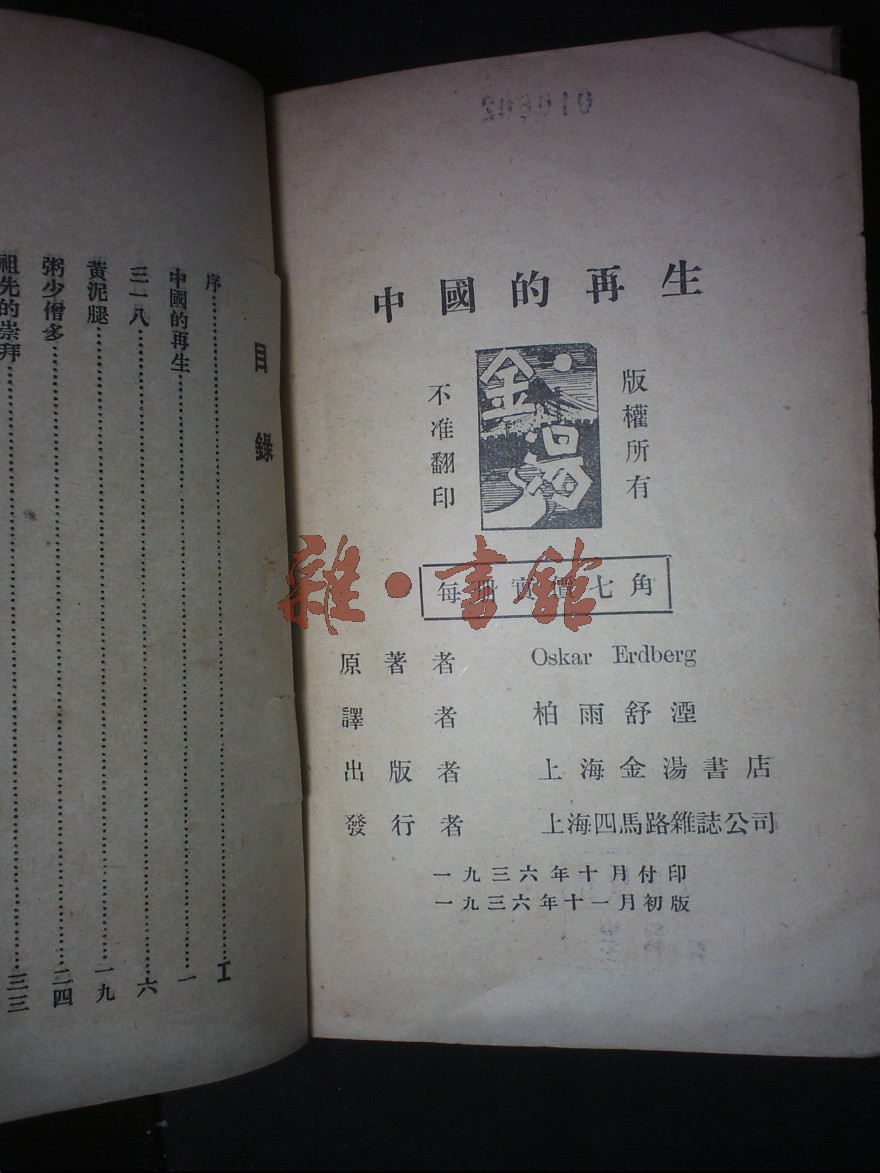 010802
中國的再生
版權所有
金湯
不准翻印
每冊實價七角
雜·書館
原著者 Oskar Erdberg
譯者 柏雨舒湮
出版者 上海金湯書店
發行者 上海四馬路雜誌公司
一九三六年十月付印
一九三六年十一月初版
目錄
序……I
中國的再生……一
三一八……六
黃泥腿……一九
粥少僧多……二四
祖先的崇拜……三三